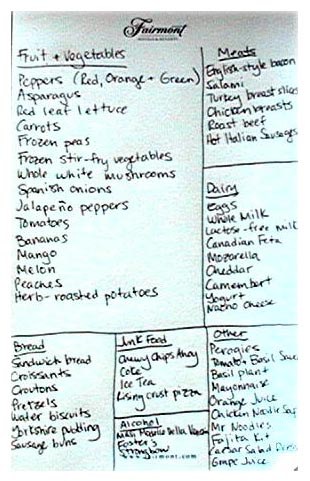 Fairmont
HOTELS & RESORTS
Fruit + Vegetables
Peppers (Red, Orange + Green)
Asparagus
Red leaf lettuce
Carrots
Frozen peas
Frozen stir-fry vegetables
Whole white mushrooms
Spanish onions
Jalapeño peppers
Tomatoes
Bananas
Mango
Melon
Peaches
Herb-roasted potatoes
Meats
English-style bacon
Salami
Turkey breast slices
Chicken breasts
Roast beef
Hot Italian Sausages
Dairy
Eggs
Whole Milk
Lactose-free milk
Canadian Feta
Mozarella
Cheddar
Camembert
Yogurt
Nacho cheese
Bread
Sandwich bread
Croissants
Croutons
Pretzels
Water biscuits
Yorkshire pudding
Sausage buns
Junk Food
Chewy Chips Ahoy
Coke
Ice Tea
Rising crust pizza
Alcohol
Foster's
Strongbow
www.fairmont.com
Other
Perogies
Tomato + Basil Sauce
Basil plant
Mayonnaise
Orange Juice
Chicken Noodle Soup
Mr Noodles
Fajita Kit
Caesar Salad Dress
Grape Juice